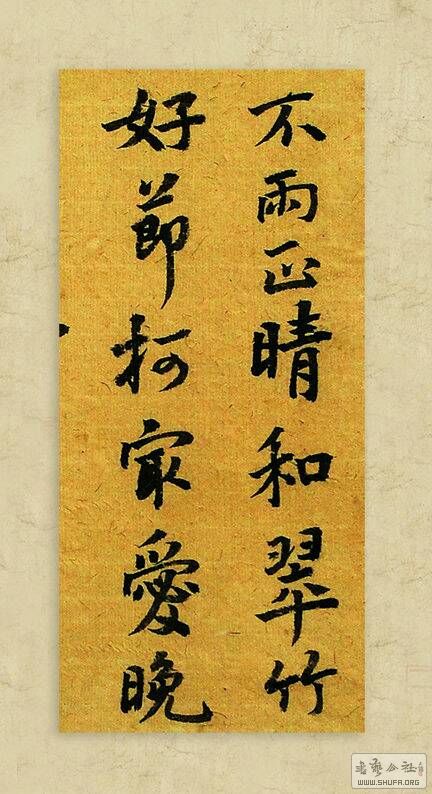 不雨正晴和翠竹
好節柯㝡愛晚
書藝公社
WWW.SHUFA.ORG